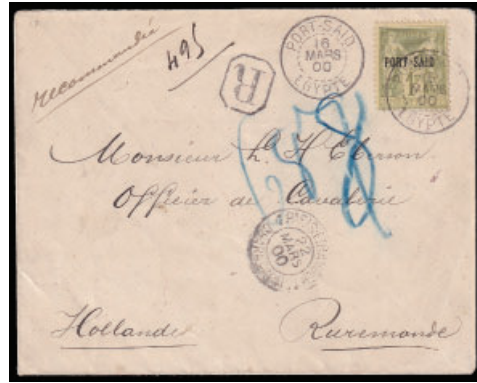 recommandée
495
R
PORT-SAID
16
MARS
00
EGYPTE
PORT-SAID
MARS
00
EGYPTE
Monsieur L. H
Officier de Cavalerie
22
MARS
00
Hollande
Ruremonde